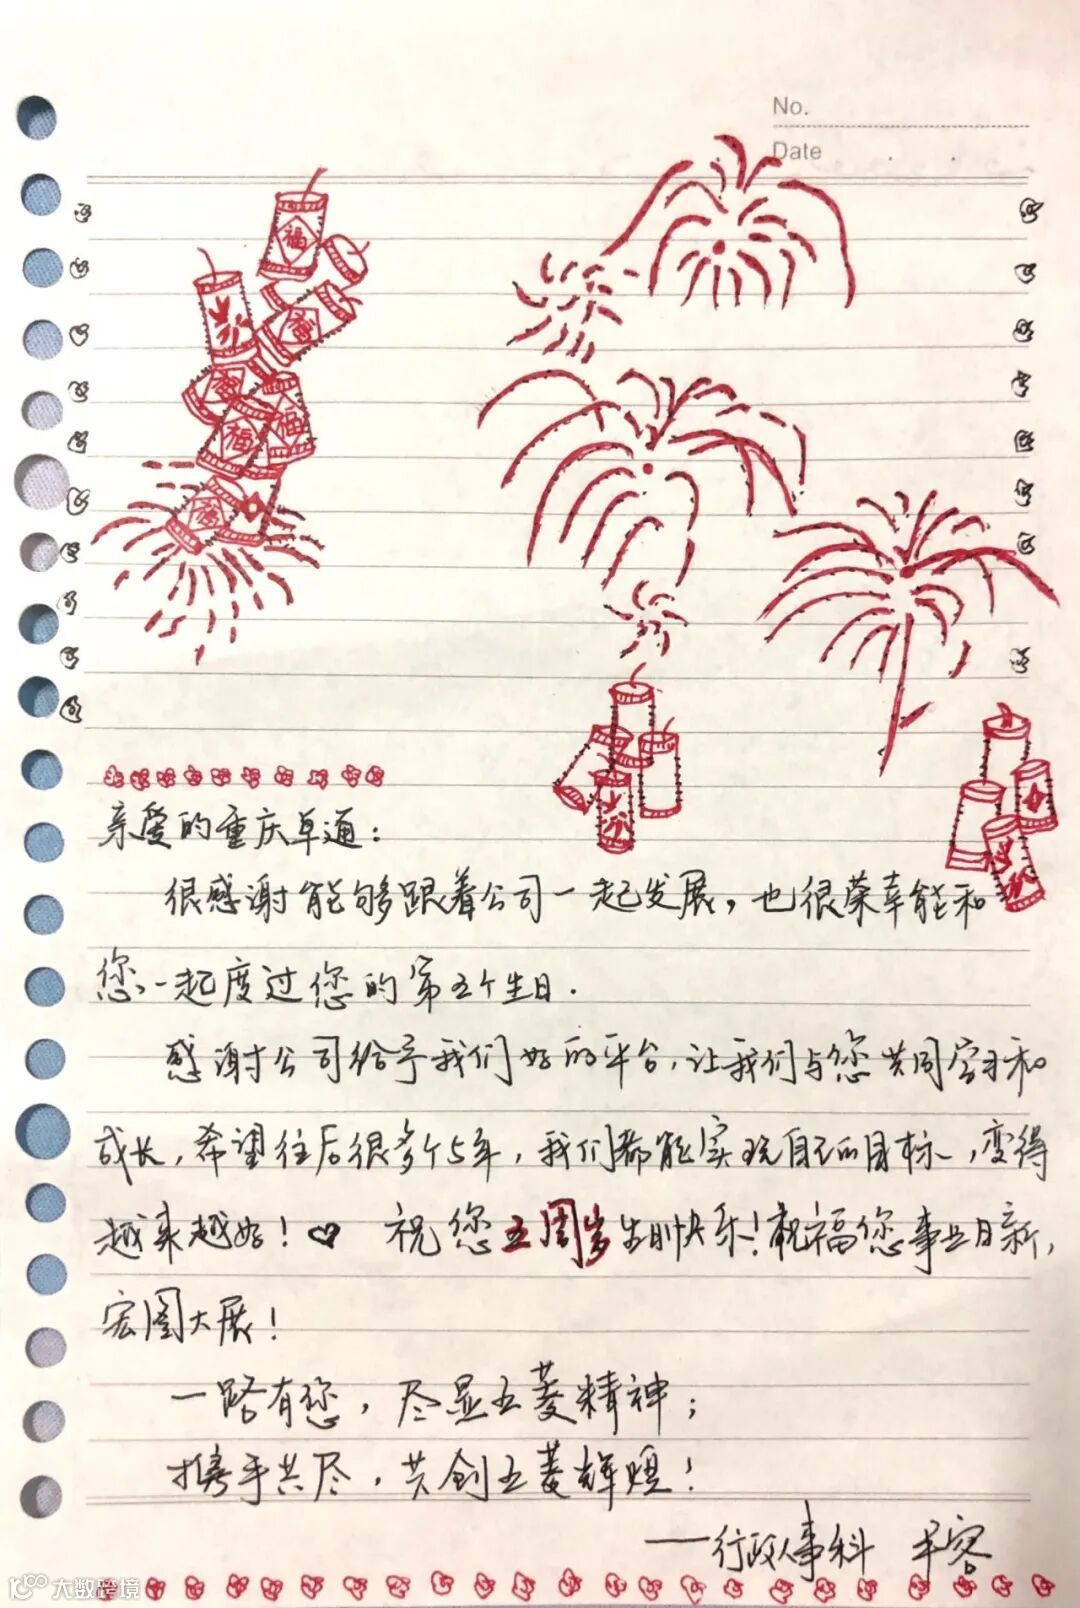 No.
Date
福
福
福
福
福
福
亲爱的重庆卓通：
很感谢能够跟着公司一起发展，也很荣幸能和
您一起度过您的第五个生日.
感谢公司给予我们好的平台，让我们与您共同学习和
成长，希望往后很多个5年，我们都能实现自己的目标，变得
越来越好！祝您五周岁生日快乐！祝福您事业日新，
宏图大展！
一路有您，尽显五菱精神；
携手共尽，共创五菱辉煌！
——行政人事科
大数跨境